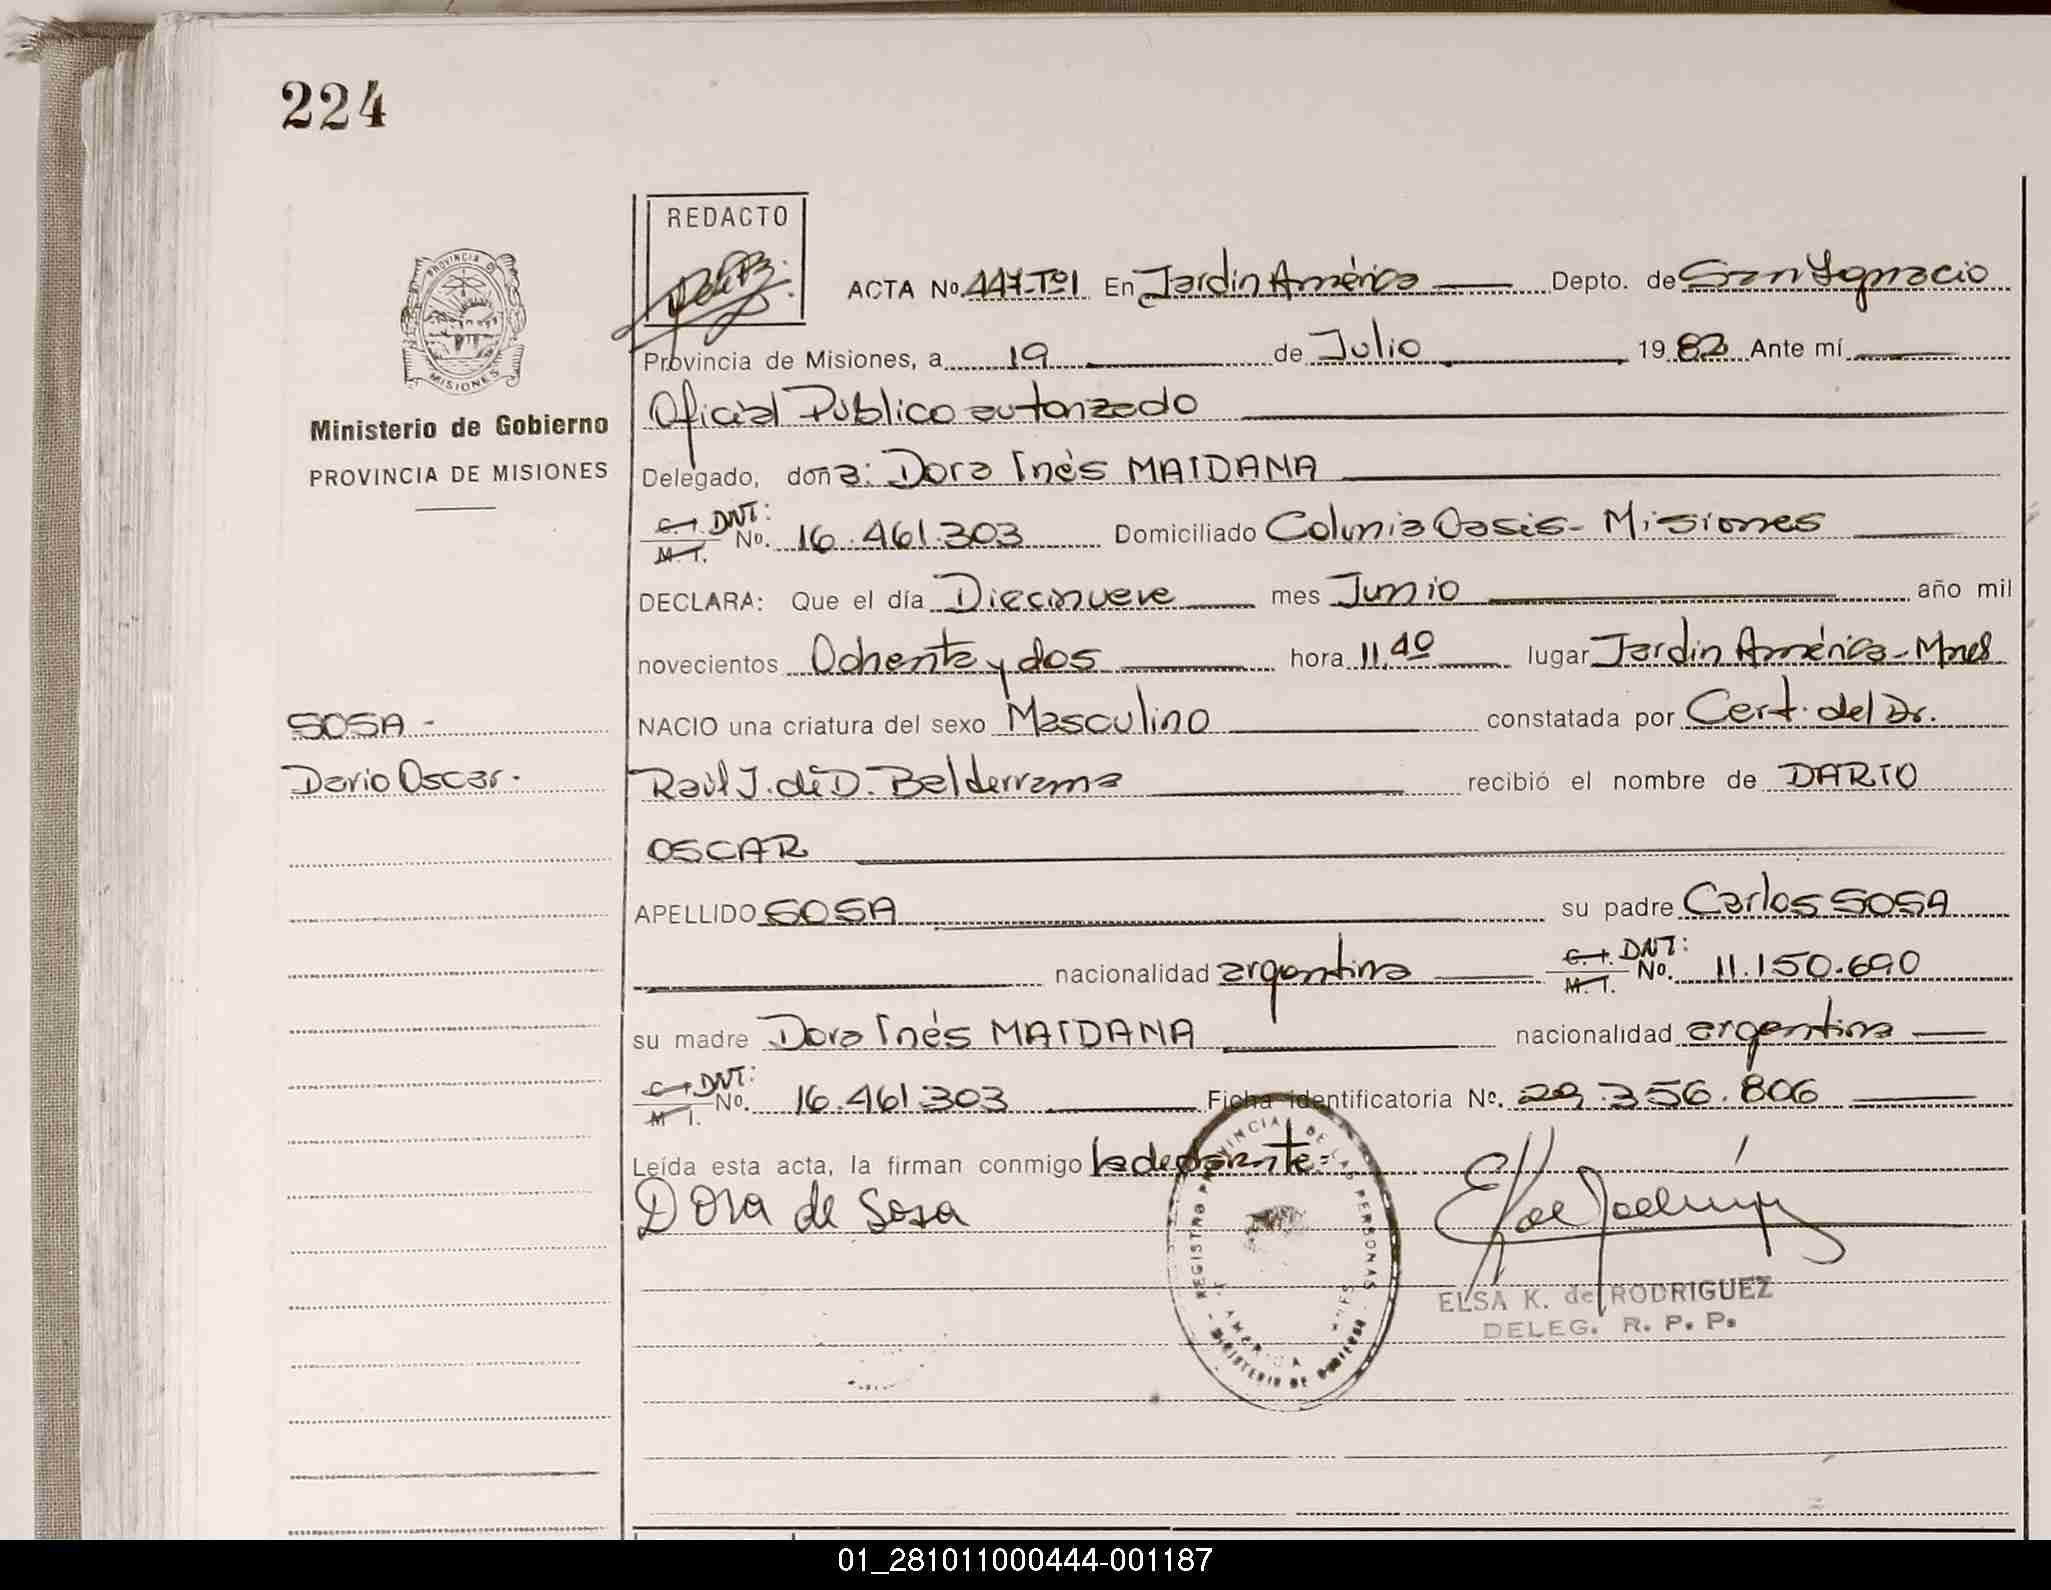 224
REDACTO
PROVINCIA DE
MISIONES
Ministerio de Gobierno
PROVINCIA DE MISIONES
ACTA No. 447-Tº1 En Jardin América Depto. de San Ignacio
Provincia de Misiones, a 19 de Julio 1982 Ante mí
Oficial Publico autorizado
Delegado, don a: Dora Inés MAIDANA
C.I. DNI:
M.I. No. 16.461.303 Domiciliado Colonia Oasis - Misiones
DECLARA: Que el día Diecinueve mes Junio año mil
novecientos Ochenta y dos hora 11,40 lugar Jardin América - Mnes
SOSA - NACIO una criatura del sexo Masculino constatada por Cert. del Dr.
Dario Oscar. Raúl J. de D. Balderrama recibió el nombre de DARIO
OSCAR
APELLIDO SOSA su padre Carlos SOSA
nacionalidad argentina C.I. DNI:
M.I. No. 11.150.690
su madre Dora Inés MAIDANA nacionalidad argentina
C.I. DNI:
M.I. No. 16.461.303 Ficha identificatoria No. 29.356.806
Leída esta acta, la firman conmigo la declarante -
Dora de Sosa
REGISTRO PROVINCIAL DE LAS PERSONAS
AMERICA
MINISTERIO DE GOBIERNO
ELSA K. de RODRIGUEZ
DELEG. R. P. P.
01_281011000444-001187